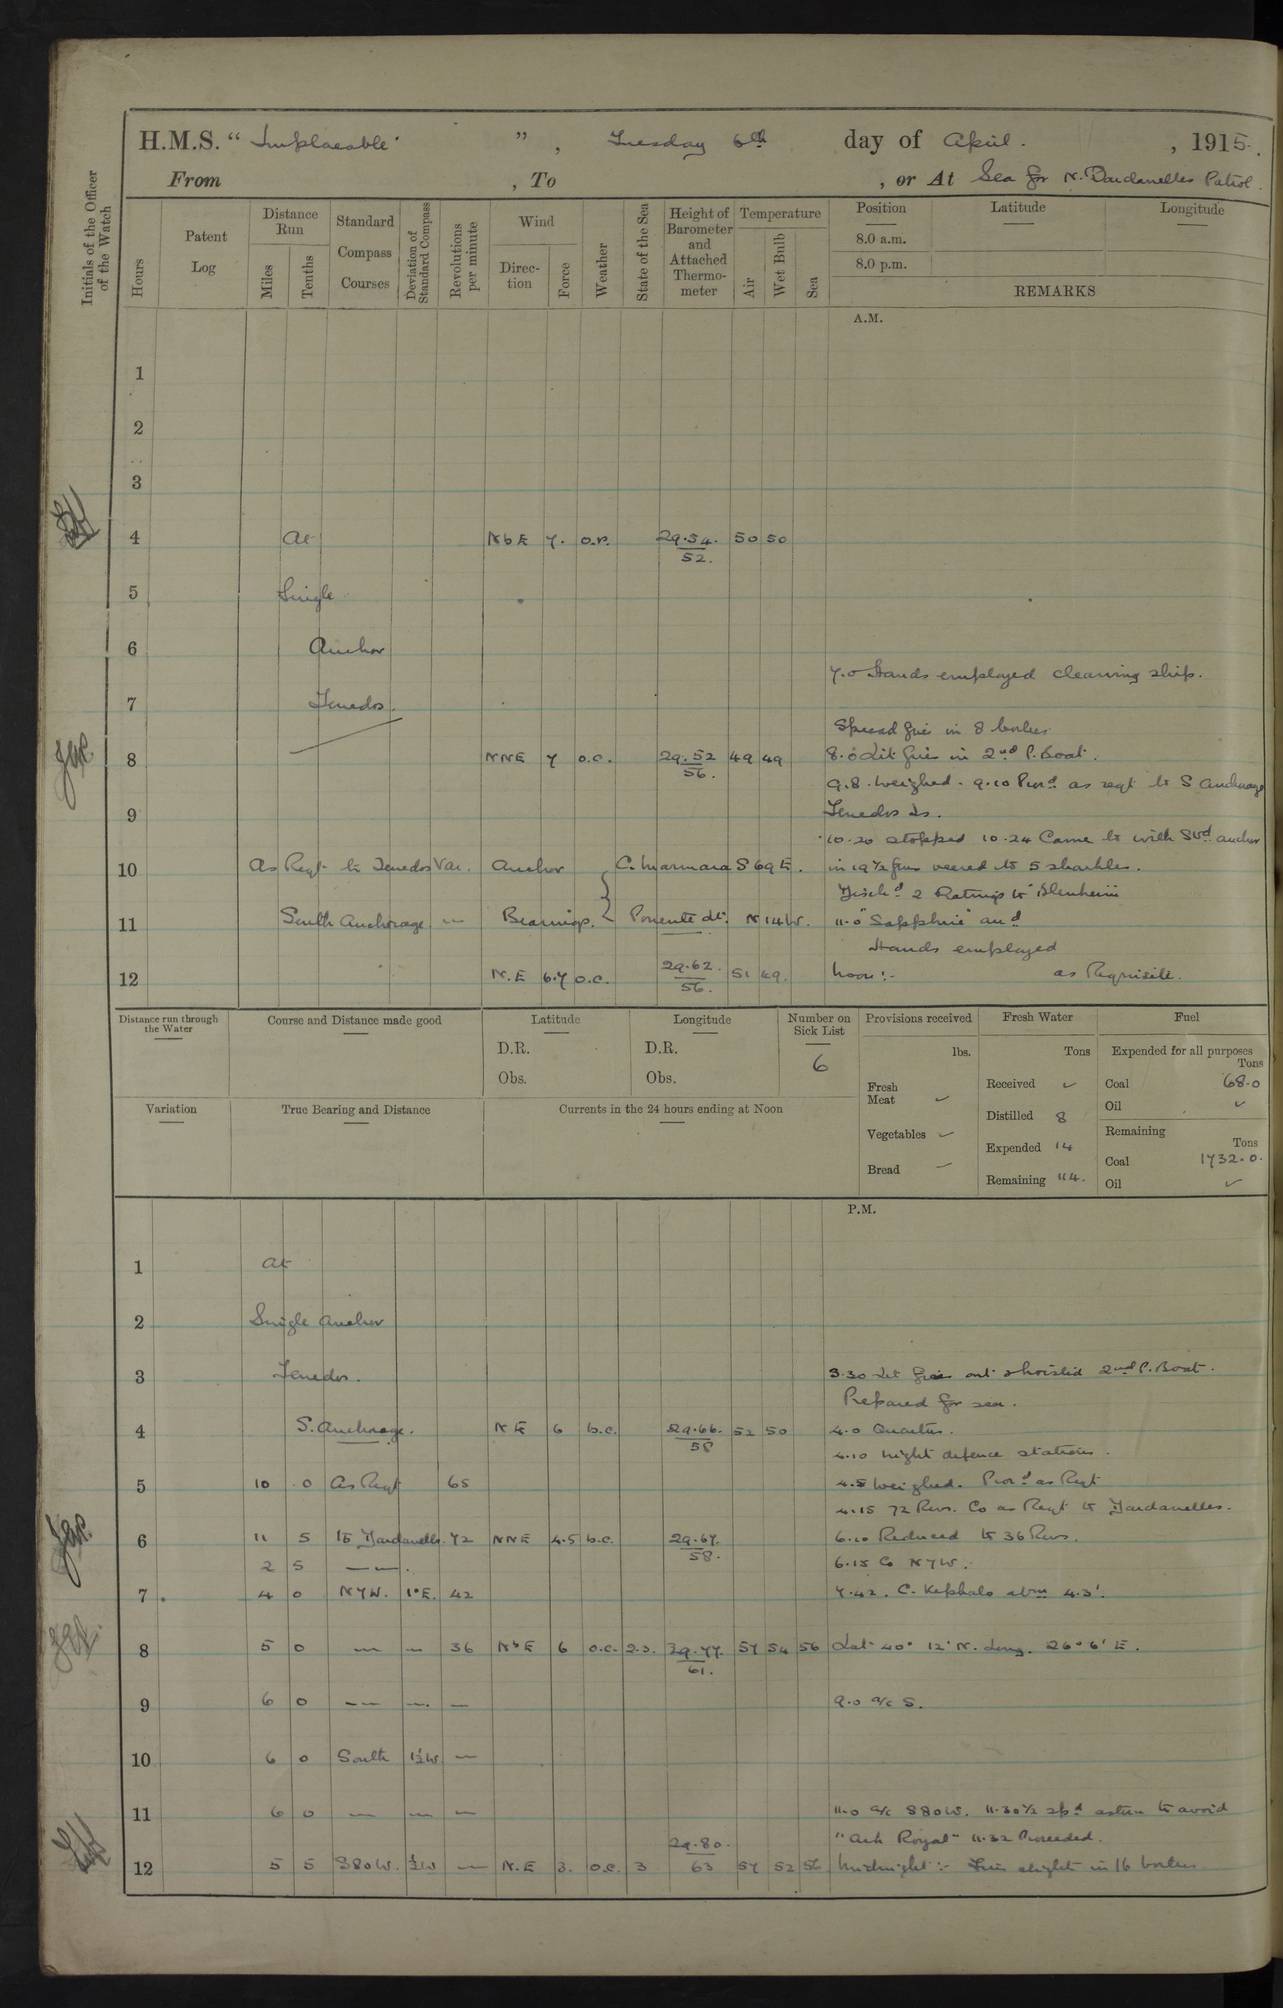 H.M.S. "Implacable", Tuesday 6th day of April, 1915.
From , To , or At Sea for N. Dardanelles Patrol.
Initials of the Officer of the Watch
Hours
Patent Log
Distance Run
Miles
Tenths
Standard Compass Courses
Deviation of Standard Compass
Revolutions per minute
Wind
Direction
Force
Weather
State of the Sea
Height of Barometer and Attached Thermometer
Temperature
Air
Wet Bulb
Sea
Position
Latitude
Longitude
8.0 a.m.
8.0 p.m.
REMARKS
A.M.
1
2
3
4 At NbE 7. o.r. 29.54. 50 50
52.
5 Single
6 Anchor
7.0 Hands employed cleaning ship.
7 Tenedos.
Spread fires in 8 boilers
8 NNE 7 o.c. 29.52 49 49 8.0 Lit fires in 2nd P. Boat.
56.
9.8. Weighed. 9.10 Procd as reqt to S Anchorage
9 Tenedos Is.
10.20 stopped 10.24 Came to with Stbd anchor
10 As Reqt to Tenedos Var. Anchor C. Marmara S 69 E. in 19½ fms veered to 5 shackles.
Disch'd 2 Ratings to Blenheim
11 South Anchorage. — Bearings. Ponente Lt. N 14 W. 11.0 "Sapphire" and
Hands employed
12 N.E 6.7 o.c. 29.62. 51 49. Noon:- as Requisite.
56.
Distance run through the Water
Course and Distance made good
Latitude
D.R.
Obs.
Longitude
D.R.
Obs.
Number on Sick List
6
Provisions received
lbs.
Fresh Meat ✓
Vegetables ✓
Bread —
Fresh Water
Tons
Received ✓
Distilled 8
Expended 14
Remaining 114.
Fuel
Expended for all purposes
Tons
Coal 68.0
Oil ✓
Remaining
Tons
Coal 1732.0.
Oil ✓
Variation
True Bearing and Distance
Currents in the 24 hours ending at Noon
P.M.
1 At
2 Single Anchor
3 Tenedos. 3.30 Let fires out & hoisted 2nd P. Boat.
Prepared for sea.
4 S. Anchorage. NE 6 b.c. 29.66. 52 50 4.0 Quarters.
58
4.10 Night defence stations.
5 10 .0 As Reqt 65 4.5 Weighed. Procd as Reqt
4.15 72 Revs. Co as Reqt to Dardanelles.
6 11 5 to Dardanelles. 72 NNE 4.5 b.c. 29.67. 6.10 Reduced to 36 Revs.
58.
2 5 — —. 6.15 Co N7W.
7 4 0 N7W. 1°E. 42 7.42. C. Kephalo abm 4.3'.
8 5 0 — — 36 NbE 6 o.c. 2.3. 29.77. 57 54 56 Lat. 40° 12' N. Long. 26° 6' E.
61.
9 6 0 — — — 9.0 a/c S.
10 6 0 South 1½W —
11 6 0 — — — 11.0 a/c S80W. 11.30½ spd astern to avoid
29.80. "Ark Royal" 11.32 Proceeded.
12 5 5 S80W. ½W — N.E 3. o.c. 3 63 57 52 56 Midnight:- Fires alight in 16 boilers